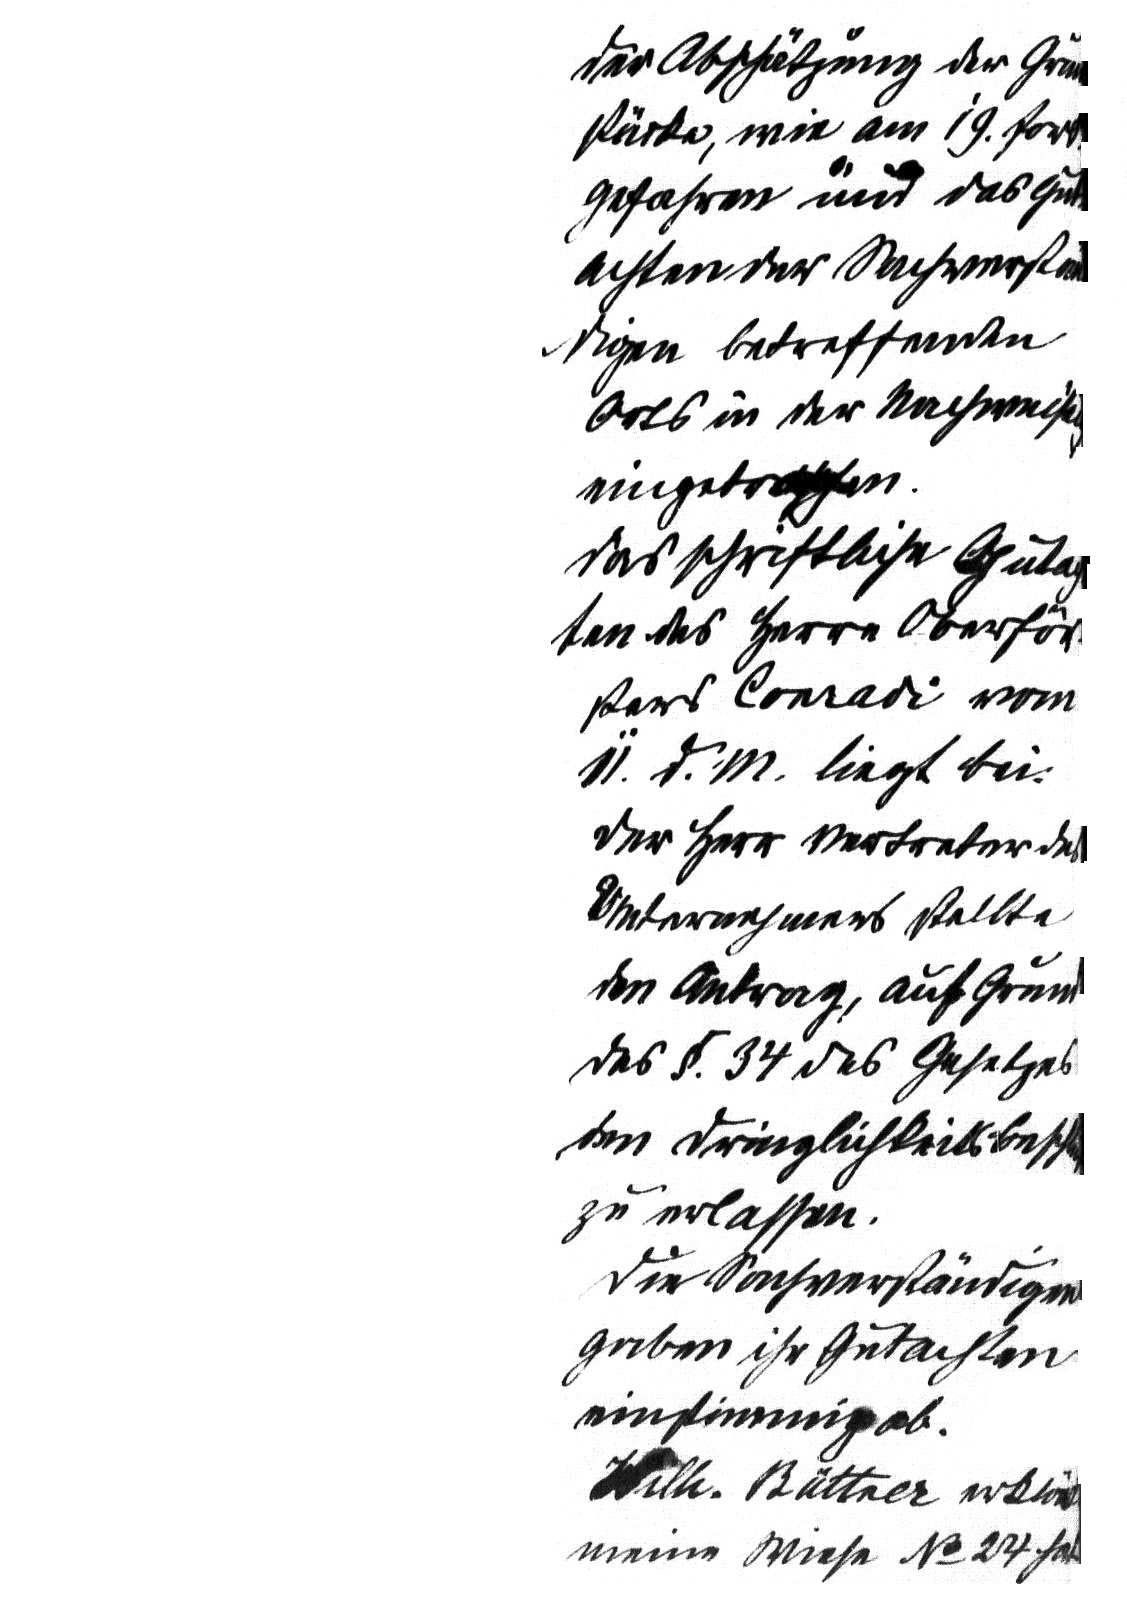 der Abschätzung der Grund
stücke, wie am 19. fort
gefahren und das Gut
achten der Sachverstän
digen betreffenden
Orts in der Nachweisung
eingetragen.
das schriftliche Gutach
ten des Herrn Oberför
sters Conradi vom
11. d. M. liegt bei.
der Herr Vertreter des
Unternehmers stellte
den Antrag, auf Grund
des §. 34 des Gesetzes
den Dringlichkeitsbeschluß
zu erlassen.
Die Sachverständigen
gaben ihr Gutachten
einstimmig ab.
Wilh. Büttner erklärt
meine Wiese № 24 hat